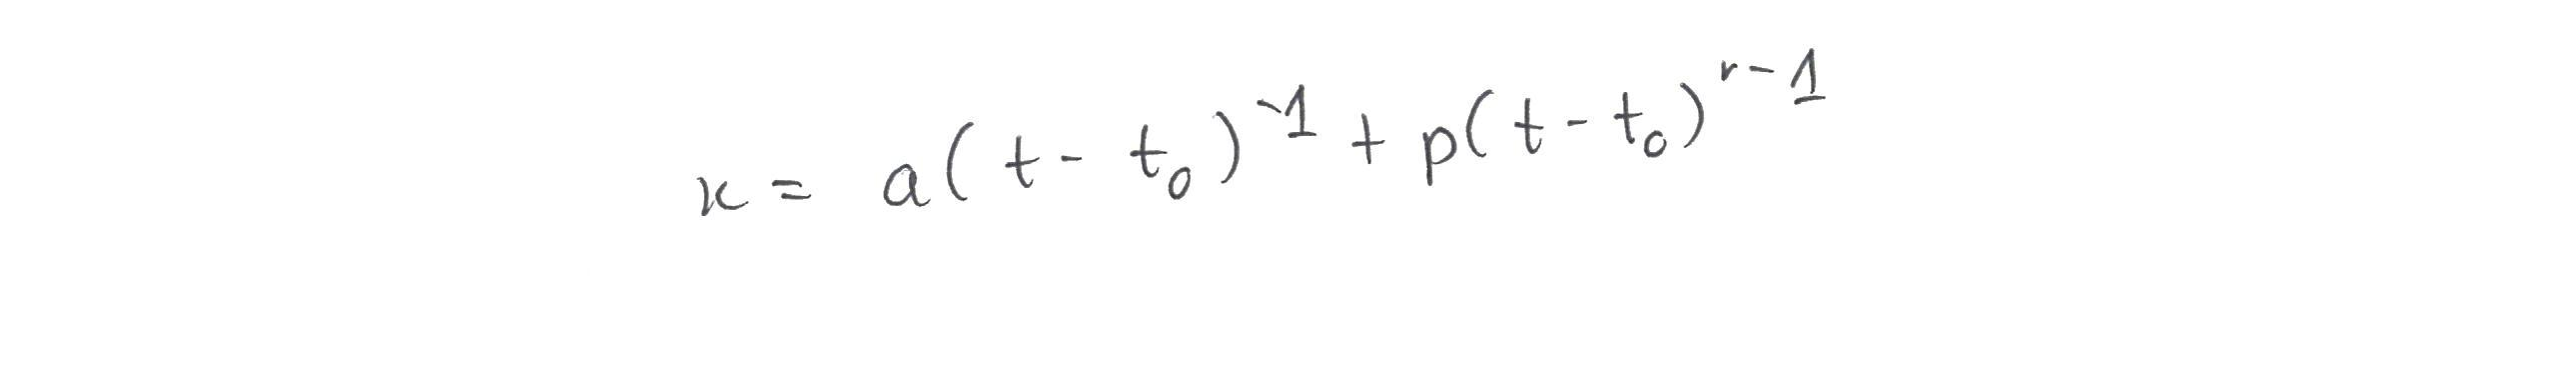 x = a(t - t₀)⁻¹ + p(t - t₀)ʳ⁻¹